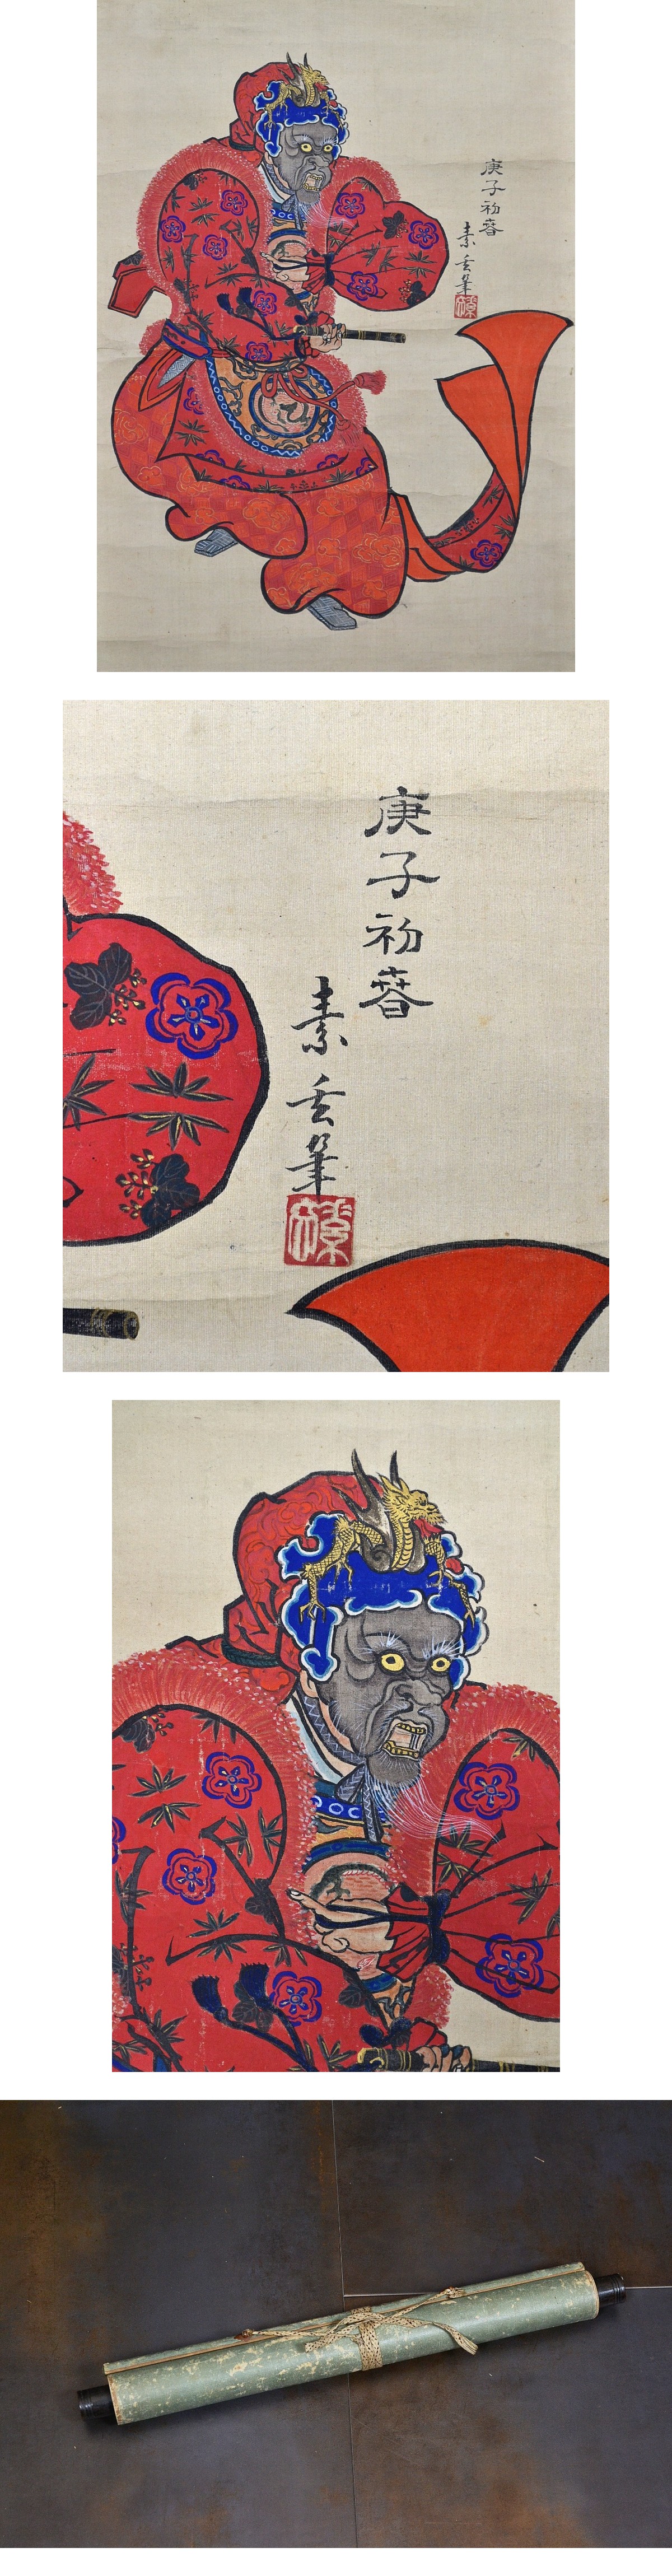 庚子初春
素玄筆
庚子初春
素玄筆